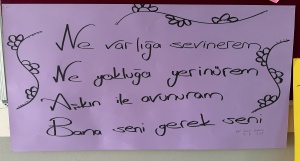 Ne varlığa sevinerem
Ne yokluğa yerinürem
Aşkın ile avunuram
Bana seni gerek seni